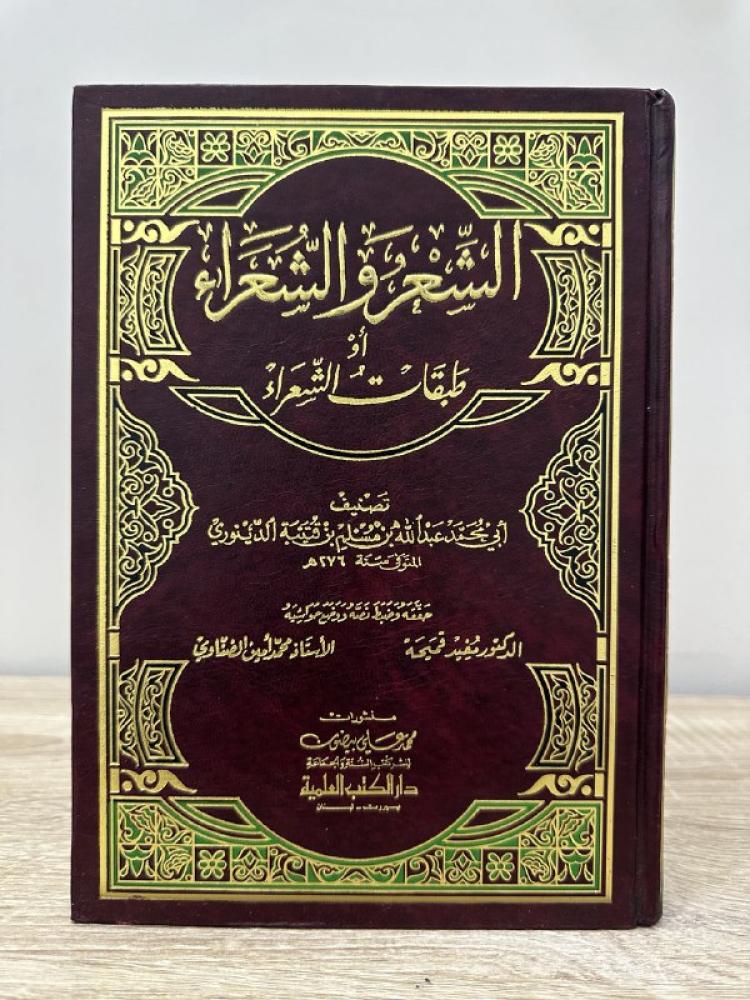 الشِّعْرُ وَالشُّعَرَاء
أَوْ
طَبَقَاتُ الشُّعَرَاءْ
تَصْنِيفُ
أَبِي مُحَمَّد عَبْدُ اللهِ بْن مُسْلِم بْن قُتَيْبَة الدِّيْنَوَرِي
المتوفى سَنَة ٢٧٦هـ
حَقَّقَهُ وَضَبَطَ نَصَّهُ وَوَضَعَ حَوَاشِيَهُ
الدكتور مُفيد قميحَة الأستاذ محمّد أمين الضنّاوي
منشورات
محمد علي بيضون
لنشر كتب السنة والجماعة
دار الكتب العلمية
بيروت - لبنان